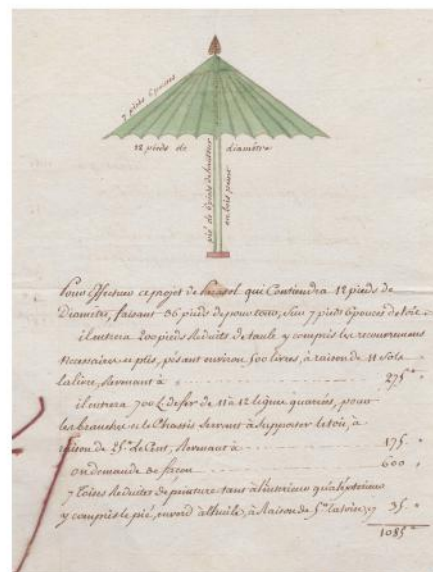 7 pieds 6 pouces
12 pieds de diamètre
pié de 6 pieds de hauteur
en bois peint
Pour Effectuer ce projet de Parasol qui Contiendra 12 pieds de
Diametre, faisant 36 pieds de pourtour, Sur 7 pieds 6 pouces de toit
il entrera 200 pieds Réduits de taule y compris les recouvremens
necessaire et plis, pésant environ 500 livres, à raison de 11 Sols
la livre, Revenant à 275 "
il entrera 700 L de fer de 11 à 12 ligne quarées, pour
les branches et le Chassis Servant à Supporter le toit, à
raison de 25 Le Cent, Revenant à 175 "
on demande de façon 600 "
7 Toises Réduites de peinture tant à l'interieur qu'à l'exterieur
y compris le pié, en verd à l'huile, à Raison de 5 la toise, cy 35 "
1085 "